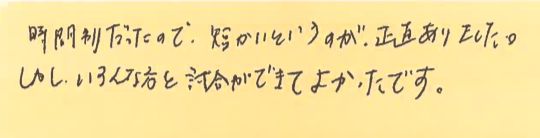 時間制だったので、短かいというのが、正直ありました。
しかし、いろんな方と試合ができてよかったです。